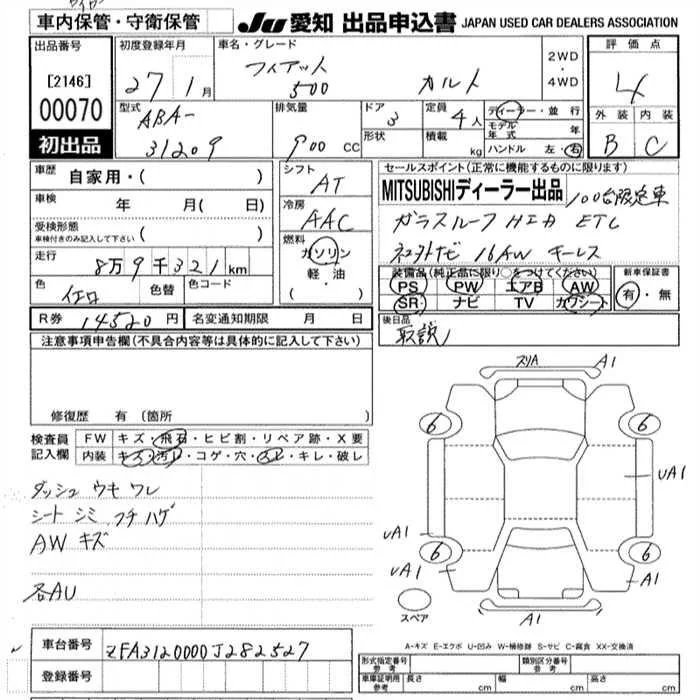 車内保管・守衛保管
JU 愛知 出品申込書 JAPAN USED CAR DEALERS ASSOCIATION
出品番号
[2146]
00070
初出品
初度登録年月
27年 1月
車名・グレード
フィアット
500
カルト
2WD
・
4WD
評価点
4
外装 内装
B C
型式
ABA-
31209
排気量
900 CC
ドア
3
形状
定員
4人
積載
kg
ディーラー・並行
モデル年式 年
ハンドル 左・右
車歴
自家用・( )
車検 年 月( 日)
受検形態
車検付きのみ記入して下さい ( )
走行
8万9千321km
色 色替 色コード
イエロ
シフト
AT
冷房
AAC
燃料
ガソリン
軽・油
( ・ )
セールスポイント(正常に機能するものに限ります)
MITSUBISHIディーラー出品 100台限定車
ガラスルーフ HID ETC
ナビ 16AW キーレス
装備品(純正品に限り○をつけてください)
PS PW エアB AW
SR ナビ TV カワシート
新車保証書
有・無
R券 14520円 名変通知期限 月 日
後日品
取説
注意事項申告欄(不具合内容等は具体的に記入して下さい)
修復歴 有 (箇所
検査員
記入欄
FW キズ・飛石・ヒビ割・リペア跡・X要
内装 キズ・汚レ・コゲ・穴・スレ・キレ・破レ
ダッシュ ウキ ワレ
シート シミ フチハゲ
AW キズ
各AU
スリA A1
6 6
UA1
UA1
6 6
UA1 A1
スペア
A1
A-キズ E-エクボ U-凹み W-補修跡 S-サビ C-腐食 XX-交換済
車台番号 ZFA3120000J282527
登録番号
形式指定番号 参考 類別区分番号 参考
車庫証明用 参考 長さ cm 幅 cm 高さ cm